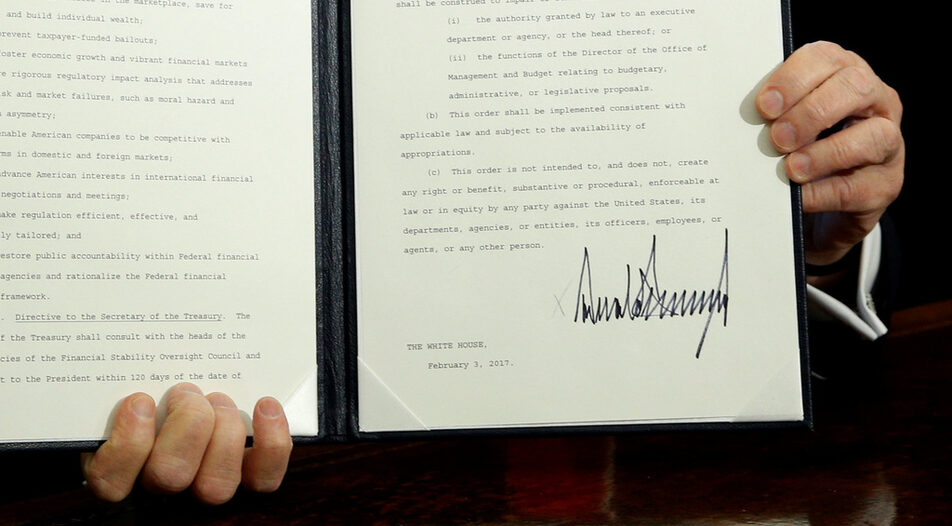 in the marketplace, save for
and build individual wealth;
prevent taxpayer-funded bailouts;
foster economic growth and vibrant financial markets
rigorous regulatory impact analysis that addresses
and market failures, such as moral hazard and
asymmetry;
enable American companies to be competitive with
in domestic and foreign markets;
advance American interests in international financial
negotiations and meetings;
make regulation efficient, effective, and
tailored; and
restore public accountability within Federal financial
agencies and rationalize the Federal financial
framework.
Directive to the Secretary of the Treasury. The
the Treasury shall consult with the heads of the
of the Financial Stability Oversight Council and
to the President within 120 days of the date of
shall be construed to impair
(i) the authority granted by law to an executive
department or agency, or the head thereof; or
(ii) the functions of the Director of the Office of
Management and Budget relating to budgetary,
administrative, or legislative proposals.
(b) This order shall be implemented consistent with
applicable law and subject to the availability of
appropriations.
(c) This order is not intended to, and does not, create
any right or benefit, substantive or procedural, enforceable at
law or in equity by any party against the United States, its
departments, agencies, or entities, its officers, employees, or
agents, or any other person.
THE WHITE HOUSE,
February 3, 2017.